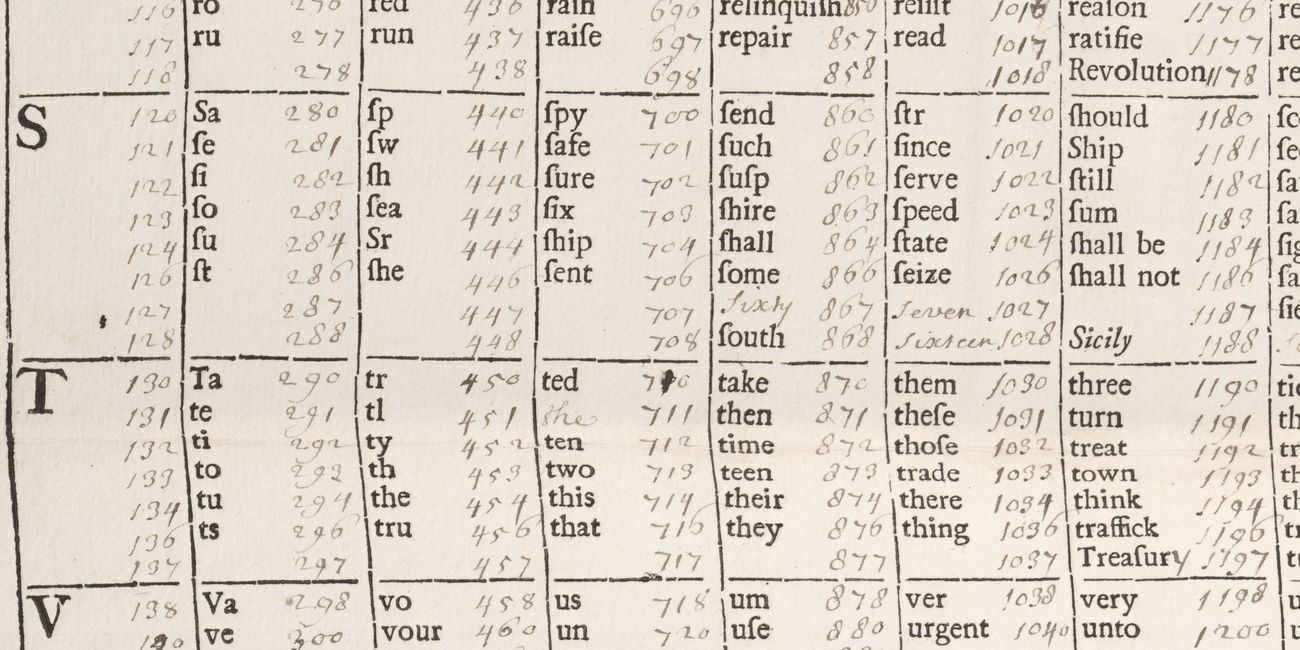 116 ro 276 red 436 rain 696 relinquiſh 850 reiſit 1016 reaſon 1176 re
117 ru 277 run 437 raiſe 697 repair 857 read 1017 ratifie 1177 re
118 278 438 698 858 1018 Revolution 1178 re
S 120 Sa 280 ſp 440 ſpy 700 ſend 860 ſtr 1020 ſhould 1180 ſc
121 ſe 281 ſw 441 ſafe 701 ſuch 861 ſince 1021 Ship 1181 ſe
122 ſi 282 ſh 442 ſure 702 ſuſp 862 ſerve 1022 ſtill 1182 ſa
123 ſo 283 ſea 443 ſix 703 ſhire 863 ſpeed 1023 ſum 1183 ſa
124 ſu 284 Sr 444 ſhip 704 ſhall 864 ſtate 1024 ſhall be 1184 ſig
126 ſt 286 ſhe 446 ſent 706 ſome 866 ſeize 1026 ſhall not 1186 ſa
127 287 447 707 Sixty 867 Seven 1027 1187 ſie
128 288 448 708 ſouth 868 Sixteen 1028 Sicily 1188
T 130 Ta 290 tr 450 ted 710 take 870 them 1030 three 1190 tic
131 te 291 tl 451 the 711 then 871 theſe 1031 turn 1191 th
132 ti 292 ty 452 ten 712 time 872 thoſe 1032 treat 1192 tr
133 to 293 th 453 two 713 teen 873 trade 1033 town 1193 th
134 tu 294 the 454 this 714 their 874 there 1034 think 1194 th
136 ts 296 tru 456 that 716 they 876 thing 1036 traffick 1196 tr
137 297 457 717 877 1037 Treaſury 1197 tu
V 138 Va 298 vo 458 us 718 um 878 ver 1038 very 1198 u
140 ve 300 vour 460 un 720 uſe 880 urgent 1040 unto 1200 u